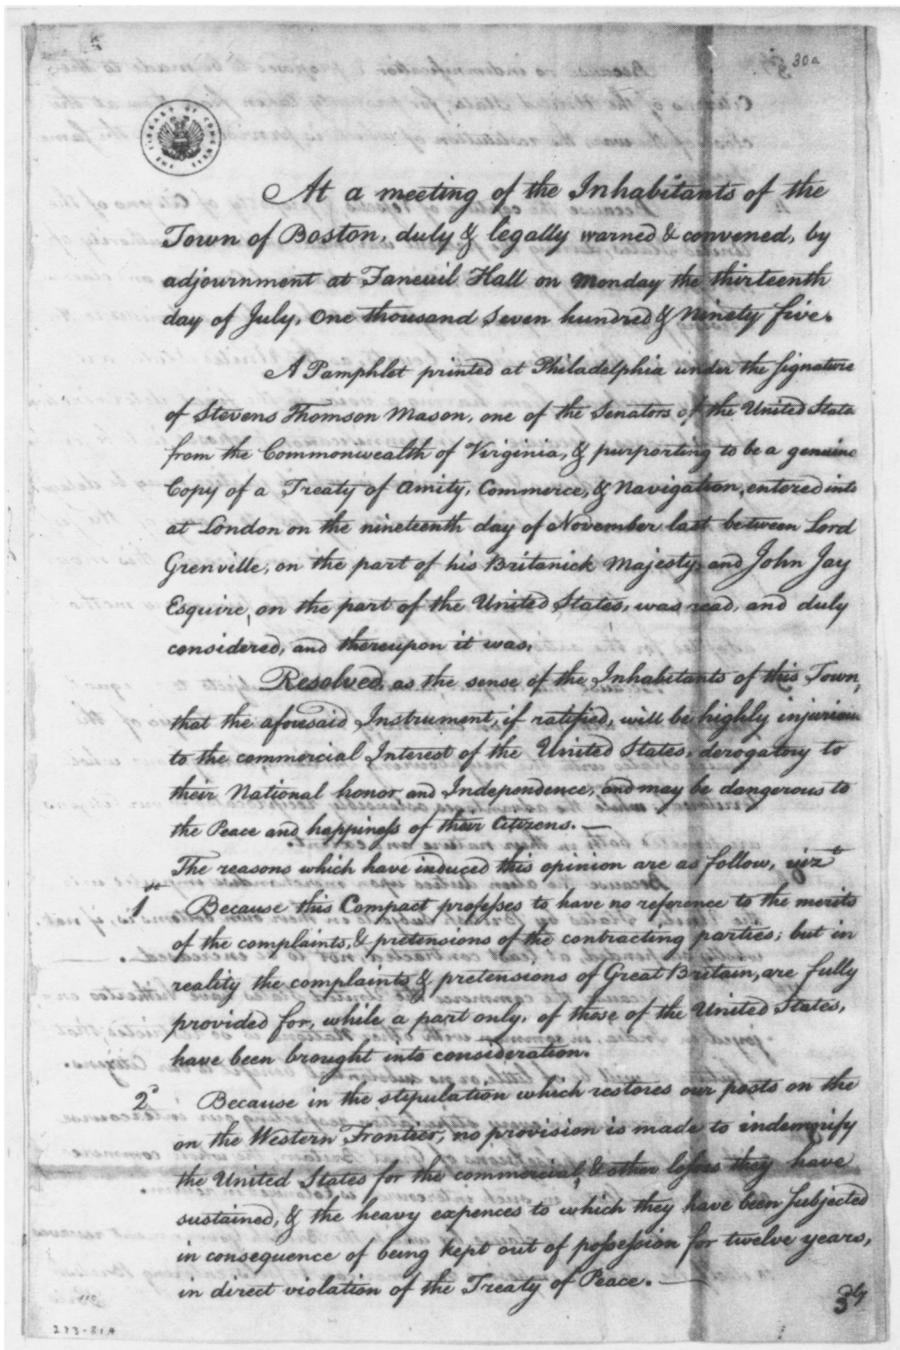 30a
LIBRARY OF CONGRESS
At a meeting of the Inhabitants of the
Town of Boston, duly & legally warned & convened, by
adjournment at Faneuil Hall on Monday the thirteenth
day of July, One thousand Seven hundred & Ninety five.
A Pamphlet printed at Philadelphia under the Signature
of Stevens Thomson Mason, one of the Senators of the United State
from the Commonwealth of Virginia, & purporting to be a genuine
Copy of a Treaty of Amity, Commerce, & Navigation, entered into
at London on the nineteenth day of November last between Lord
Grenville, on the part of his Britanick Majesty and John Jay
Esquire, on the part of the United States, was read, and duly
considered, and thereupon it was,
Resolved, as the sense of the Inhabitants of this Town,
that the aforesaid Instrument, if ratified, will be highly injurious
to the commercial Interest of the United States, derogatory to
their National honor and Independence, and may be dangerous to
the Peace and happiness of their Citizens. —
The reasons which have induced this opinion are as follow, vizt
1st Because this Compact professes to have no reference to the merits
of the complaints, & pretensions of the contracting parties; but in
reality the complaints & pretensions of Great Britain, are fully
provided for, while a part only, of those of the United States,
have been brought into consideration.
2d Because in the stipulation which restores our posts on the
on the Western Frontier, no provision is made to indemnify
the United States for the commercial, & other losses they have
sustained, & the heavy expences to which they have been subjected
in consequence of being kept out of possession for twelve years,
in direct violation of the Treaty of Peace. —
3dly